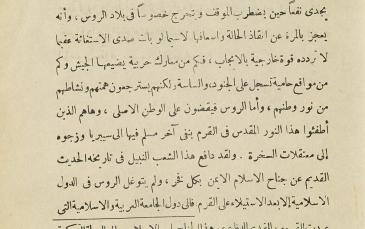 يجدى نفعا حين يضطرب الموقف ويتحرج خصوصا فى بلاد الروس ، وأنه
يعجز بالمرة عن انقاذ الحالة واسعافها لاسيما لو بات صدى الاستغاثة عقيما
لا تردده قوة خارجية بالايجاب ، فكم من معارك حربية يضيعها الجيش وكم
من مواقع حامية تسجل على الجنود ، والساسة ، لكنهم يسترجعون همتهم ونشاطهم
من نور وطنهم ، وأما الروس فيقضون على الوطن الاصلى ، وهاهم الذين
أطفئوا هذا النور المقدس فى القرم بنفى آخر مسلم فيها الى سيبريا وزجوه
إلى معتقلات السخرة . ولقد دافع هذا الشعب النبيل فى تاريخه الحديث
القديم عن جناح الاسلام الايمن بكل فخر ، ولم يتوغل الروس فى الدول
الاسلامية إلا بعد الاستيلاء على القرم فالى دول الجامعة العربية والاسلامية التى